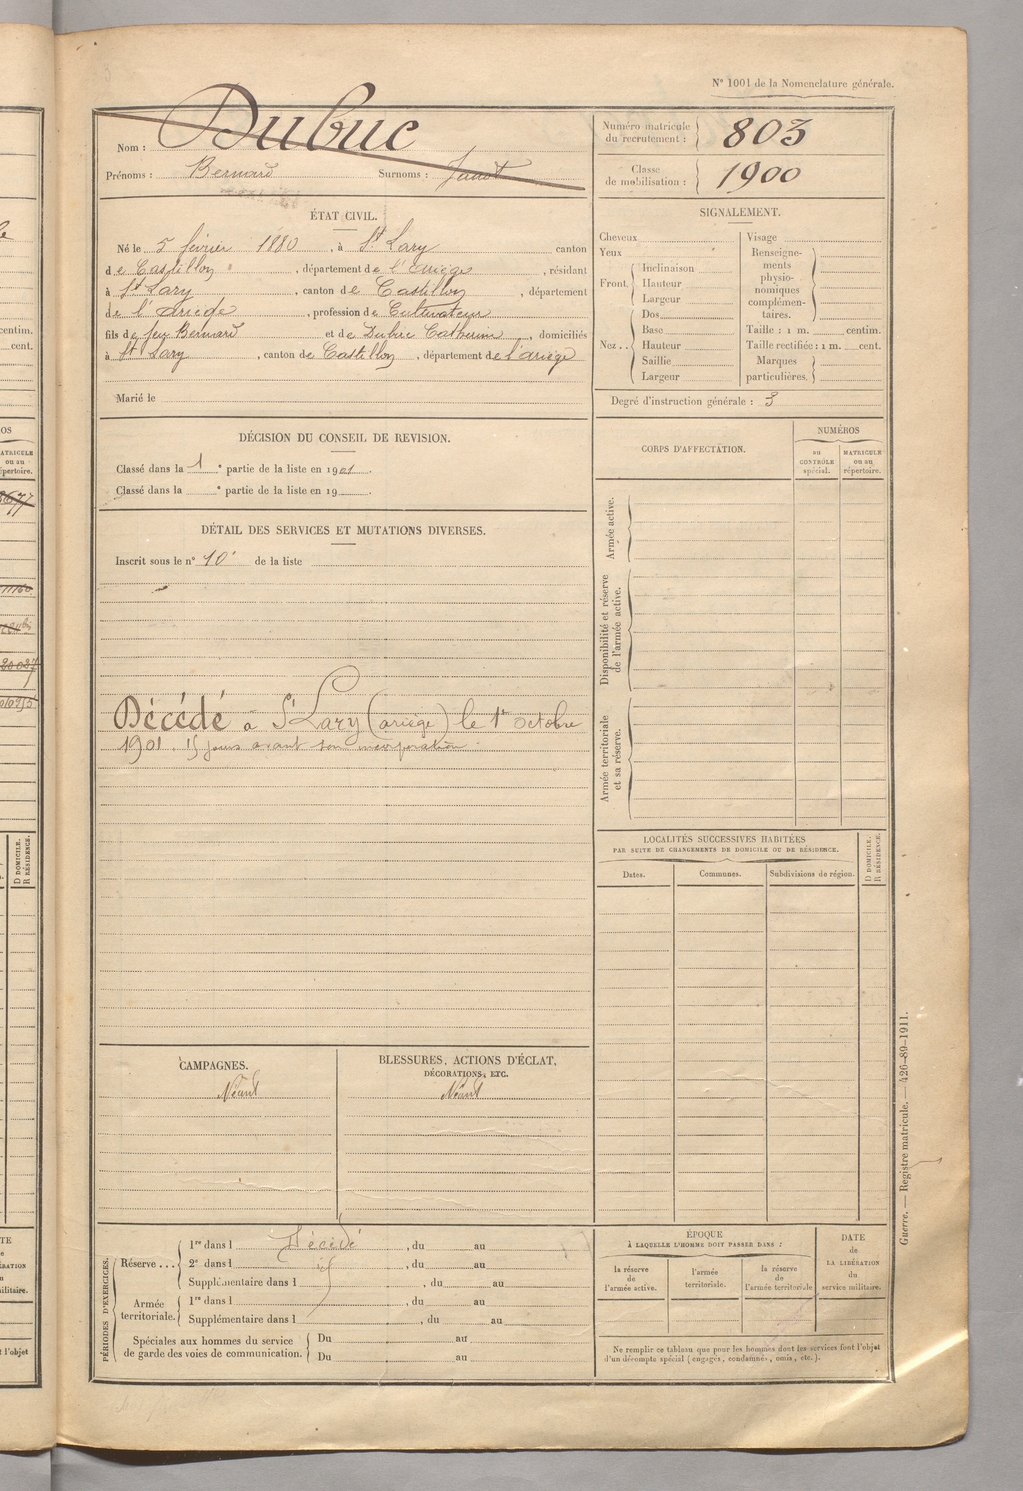 N° 1001 de la Nomenclature générale.
Nom : Dubuc
Prénoms : Bernard Surnoms :
Numéro matricule du recrutement : 803
Classe de mobilisation : 1900
ÉTAT CIVIL.
Né le 5 février 1880, à St Lary canton
de Castillon, département de l'Ariège, résidant
à St Lary, canton de Castillon, département
de l'Ariège, profession de Cultivateur
fils de feu Bernard et de Dubuc Catherine, domiciliés
à St Lary, canton de Castillon, département de l'ariège
Marié le
SIGNALEMENT.
Cheveux
Yeux
Front. Inclinaison
Hauteur
Largeur
Nez.. Dos
Base
Hauteur
Saillie
Largeur
Visage
Renseigne-
ments
physio-
nomiques
complémen-
taires.
Taille : 1 m. centim.
Taille rectifiée : 1 m. cent.
Marques
particulières.
Degré d'instruction générale : 3
DÉCISION DU CONSEIL DE REVISION.
Classé dans la 1 e partie de la liste en 1901.
Classé dans la e partie de la liste en 19 .
DÉTAIL DES SERVICES ET MUTATIONS DIVERSES.
Inscrit sous le n° 10 de la liste
Décédé à St Lary (ariège) le 1er octobre
1901. 15 jours avant son incorporation.
CORPS D'AFFECTATION.
NUMÉROS
au
CONTRÔLE
spécial.
MATRICULE
ou au
répertoire.
Armée active.
Disponibilité et réserve
de l'armée active.
Armée territoriale
et sa réserve.
LOCALITÉS SUCCESSIVES HABITÉES
PAR SUITE DE CHANGEMENTS DE DOMICILE OU DE RÉSIDENCE.
D DOMICILE.
R RÉSIDENCE.
Dates.
Communes.
Subdivisions de région.
CAMPAGNES.
Néant
BLESSURES, ACTIONS D'ÉCLAT,
DÉCORATIONS, ETC.
Néant
PÉRIODES D'EXERCICES.
Réserve ... 1re dans l Décédé, du au
2e dans l , du au
Supplémentaire dans l , du au
Armée
territoriale. 1re dans l , du au
Supplémentaire dans l , du au
Spéciales aux hommes du service
de garde des voies de communication. Du au
Du au
ÉPOQUE
À LAQUELLE L'HOMME DOIT PASSER DANS :
la réserve
de
l'armée active.
l'armée
territoriale.
la réserve
de
l'armée territoriale
DATE
de
LA LIBÉRATION
du
service militaire.
Ne remplir ce tableau que pour les hommes dont les services font l'objet
d'un décompte spécial (engagés, condamnés, omis, etc.).
Guerre. — Registre matricule. — 426-89-1911.